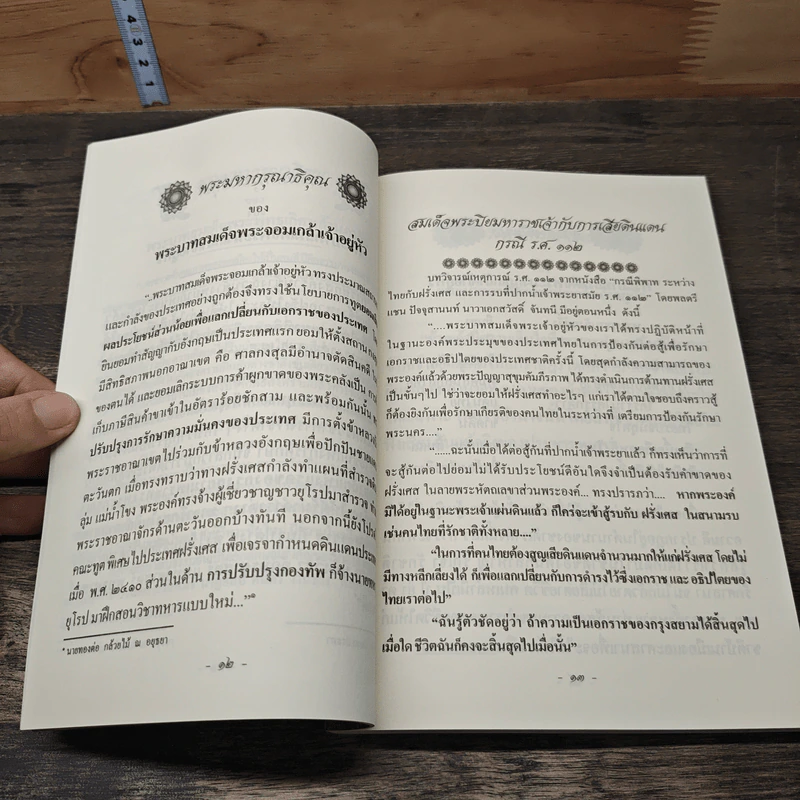 4
3
2
1
พระมหากรุณาธิคุณ
ของ
พระบาทสมเด็จพระจอมเกล้าเจ้าอยู่หัว
"..พระบาทสมเด็จพระจอมเกล้าเจ้าอยู่หัว ทรงประมาณสถาน
และกำลังของประเทศอย่างถูกต้องจึงทรงใช้นโยบายการทูต
ผลประโยชน์ส่วนน้อยเพื่อแลกเปลี่ยนกับเอกราชของประเทศ
ยินยอมทำสัญญากับอังกฤษเป็นประเทศแรก ยอมให้ตั้งสถาน
มีสิทธิสภาพนอกอาณาเขต คือ ศาลกงสุลมีอำนาจตัดสินคดี
ของตนได้ และยอมเลิกระบบการค้าผูกขาดของพระคลังเป็น
เก็บภาษีสินค้าขาเข้าในอัตราร้อยชักสาม และพร้อมกันนั้น
ปรับปรุงการรักษาความมั่นคงของประเทศ มีการตั้งข้าหลวง
พระราชอาณาเขตไปร่วมกับข้าหลวงอังกฤษเพื่อปักปันชายแดน
ตะวันตก เมื่อทรงทราบว่าทางฝรั่งเศสกำลังทำแผนที่สำรวจดิน
ลุ่ม แม่น้ำโขง พระองค์ทรงจ้างผู้เชี่ยวชาญชาวยุโรปมาสำรวจ
พระราชอาณาจักรด้านตะวันออกบ้างทันที นอกจากนี้ยังโปรด
คณะทูต พิเศษไปประเทศฝรั่งเศส เพื่อเจรจากำหนดดินแดน
เมื่อ พ.ศ. ๒๔๑๐ ส่วนในด้าน การปรับปรุงกองทัพ ก็จ้างนายทหาร
ยุโรป มาฝึกสอนวิชาทหารแบบใหม่..."*
* นายทองต่อ กล้วยไม้ ณ อยุธยา
- ๑๒ -
สมเด็จพระปิยมหาราชเจ้ากับการเสียดินแดน
กรณี ร.ศ. ๑๑๒
บทวิจารณ์เหตุการณ์ ร.ศ. ๑๑๒ จากหนังสือ "กรณีพิพาท ระหว่าง
ไทยกับฝรั่งเศส และการรบที่ปากน้ำเจ้าพระยาสมัย ร.ศ. ๑๑๒" โดยพลตรี
แชน ปัจจุสานนท์ นาวาเอกสวัสดิ์ จันทนี มีอยู่ตอนหนึ่ง ดังนี้
"....พระบาทสมเด็จพระเจ้าอยู่หัวของเราได้ทรงปฏิบัติหน้าที่
ในฐานะองค์พระประมุขของประเทศไทยในการป้องกันต่อสู้เพื่อรักษา
เอกราชและอธิปไตยของประเทศชาติครั้งนี้ โดยสุดกำลังความสามารถของ
พระองค์แล้วด้วยพระปัญญาสุขุมคัมภีรภาพ ได้ทรงดำเนินการต้านทานฝรั่งเศส
เป็นขั้นๆไป ใช่ว่าจะยอมให้ฝรั่งเศสทำอะไรๆ แก่เราได้ตามใจชอบถึงคราวสู้
ก็ต้องยิงกันเพื่อรักษาเกียรติของคนไทยในระหว่างที่ เตรียมการป้องกันรักษา
พระนคร...."
"......ฉะนั้นเมื่อได้ต่อสู้กันที่ปากน้ำเจ้าพระยาแล้ว ก็ทรงเห็นว่าการที่
จะสู้กันต่อไปย่อมไม่ได้รับประโยชน์ดีอันใดจึงจำเป็นต้องรับคำขาดของ
ฝรั่งเศส ในลายพระหัตถเลขาส่วนพระองค์... ทรงปรารภว่า.... หากพระองค์
มิได้อยู่ในฐานะพระเจ้าแผ่นดินแล้ว ก็ใคร่จะเข้าสู้รบกับ ฝรั่งเศส ในสนามรบ
เช่นคนไทยที่รักชาติทั้งหลาย...."
"ในการที่คนไทยต้องสูญเสียดินแดนจำนวนมากให้แก่ฝรั่งเศส โดยไม่
มีทางหลีกเลี่ยงได้ ก็เพื่อแลกเปลี่ยนกับการดำรงไว้ซึ่งเอกราช และ อธิปไตยของ
ไทยเราต่อไป"
"ฉันรู้ตัวชัดอยู่ว่า ถ้าความเป็นเอกราชของกรุงสยามได้สิ้นสุดไป
เมื่อใด ชีวิตฉันก็คงจะสิ้นสุดไปเมื่อนั้น"
- ๑๓ -